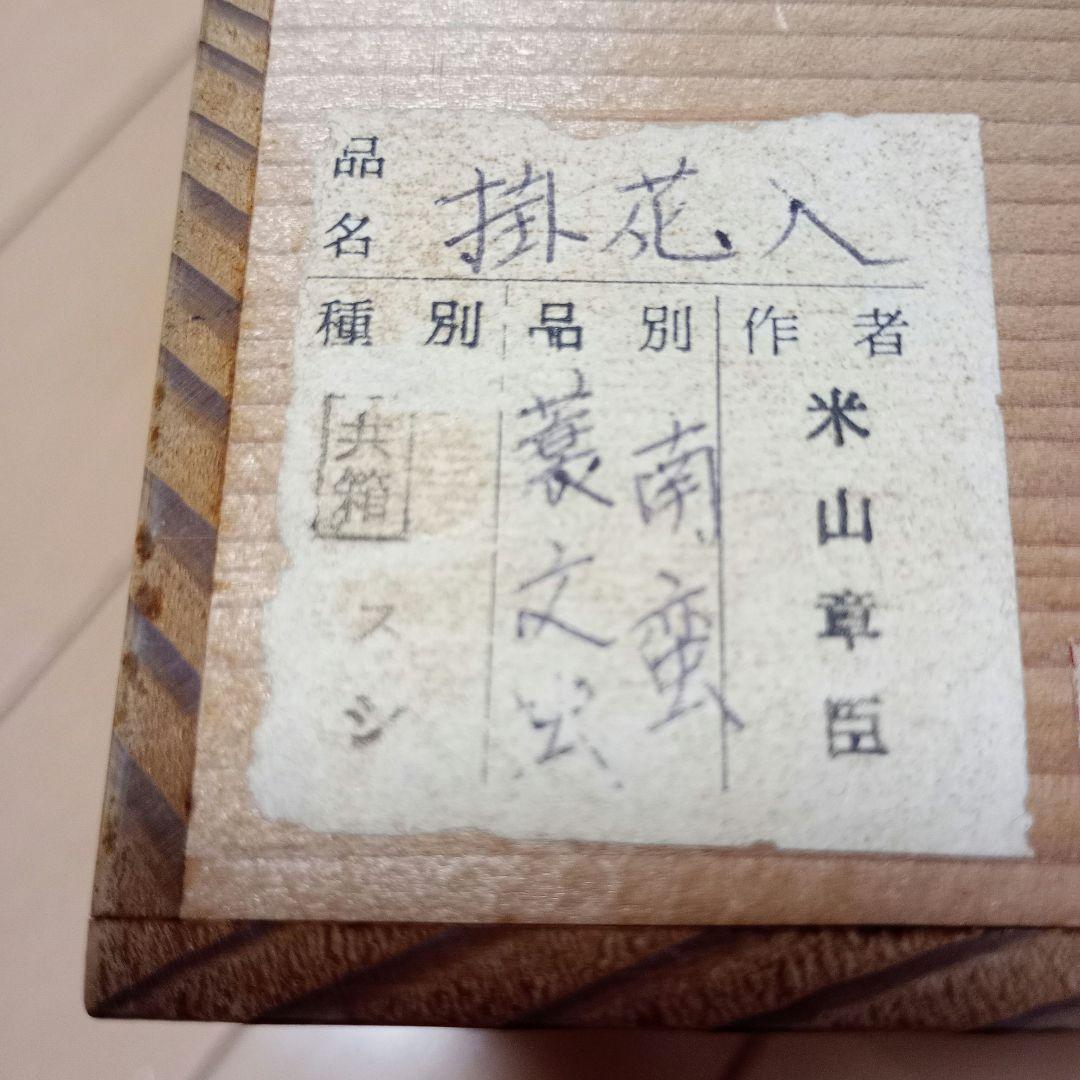 品名 掛花入
種別 品別 作者
米山章臣
南蛮
蓑文
共箱
スジ